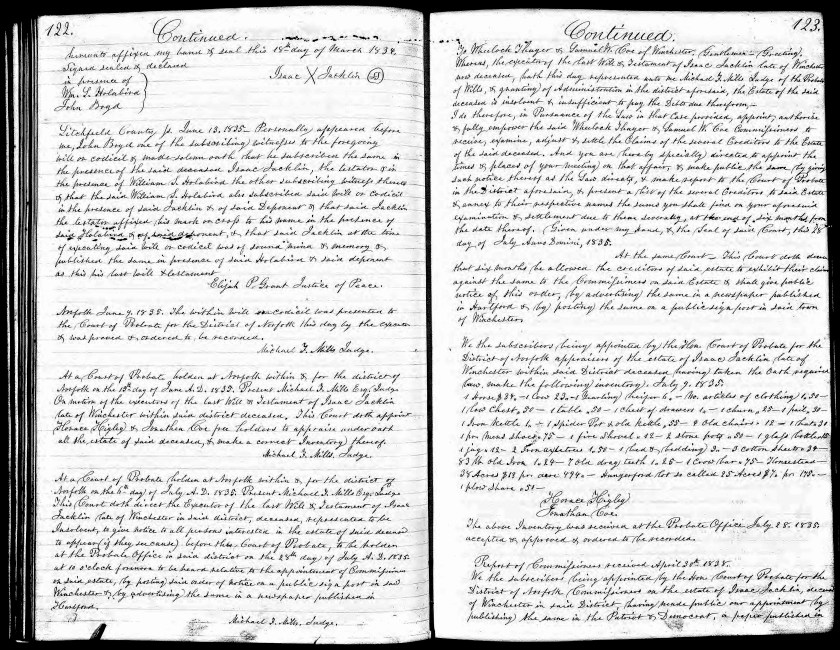 122.
Continued.
hereunto affixed my hand & seal this 18th day of March 1834.
Signed sealed & declared
in presence of
Wm. S. Holabird
John Boyd
Isaac X Jacklin
Litchfield County, ss. June 13. 1835 - Personally appeared before
me, John Boyd one of the subscribing witnesses to the foregoing
will or codicil & made solemn oath that he subscribed the same in
the presence of the said deceased Isaac Jacklin, the testator & in
the presence of William S. Holabird the other subscribing witness thereto
& that the said William S. Holabird also subscribed said will or codicil
in the presence of said Jacklin & of said Deponent & that said Jacklin
the testator affixed his mark or cross to his name in the presence of
said Holabird & of said deponent, & that said Jacklin at the time
of executing said will or codicil was of sound mind & memory &
published the same in presence of said Holabird & said deponent
as this his last will & testament
Elijah P. Grant Justice of Peace.
Norfolk June 9. 1835. The within will codicil was presented to
the Court of Probate for the District of Norfolk this day by the executor
& was proved & ordered to be recorded.
Michael F. Mills Judge.
At a Court of Probate holden at Norfolk within & for the district of
Norfolk on the day of June A.D. 1835. Present Michael F. Mills Esq. Judge
On motion of the executors of the last Will & Testament of Isaac Jacklin
late of Winchester within said district deceased. This Court doth appoint
Horace Higley & Jonathan Coe free holders to appraise under oath
all the estate of said deceased, & make a correct Inventory thereof.
Michael F. Mills. Judge.
At a Court of Probate holden at Norfolk within & for the district of
Norfolk on the 6th day of July A.D. 1835. Present Michael F. Mills Esq. Judge
This Court doth direct the Executor of the last Will & Testament of Isaac
Jacklin late of Winchester in said district, deceased, represented to be
Insolvent, to give notice to all persons interested in the estate of said deceased
to appear (if they see cause) before this Court of Probate, to be holden
at the Probate Office in said district on the 28th day of July A.D. 1835
at 10 o'clock forenoon to be heard relative to the appointment of Commissioners
on said estate, by posting said order of notice on a public sign post in said
Winchester & by advertising the same in a newspaper published in
Hartford.
Michael F. Mills. Judge.
123.
Continued.
To Wheelock Thayer & Samuel W. Coe of Winchester, Gentlemen - (Greeting).
Whereas, the executor of the last Will & Testament of Isaac Jacklin late of Winchester
now deceased, hath this day represented unto me Michael F. Mills Judge of the Probate
of Wills, & granting of Administration in the district aforesaid, the Estate of the said
deceased is insolvent & insufficient to pay the Debts due therefrom,-
I do therefore, in Pursuance of the Law in that case provided, appoint, authorise
& fully empower the said Wheelock Thayer & Samuel W. Coe Commissioners to
receive, examine, adjust & settle the Claims of the several Creditors to the Estate
of the said deceased. And you are hereby specially directed to appoint the
times & places of your meeting on that affair, & make public the same, by giving
such notice thereof as the Law directs, & make report to the Court of Probate
in the District aforesaid, & present a list of the several Creditors to said Estate
& annex to their respective names the sums you shall find on your aforesaid
examination & settlement due to them severally, at the end of six months from
the date thereof. Given under my Hand, & the Seal of said Court, this 28
day of July Anno Domini, 1835.
At the same Court - This Court doth decree
that six months be allowed the creditors of said estate to exhibit their claims
against the same to the Commissioners on said Estate & shall give public
notice of this order, by advertising the same in a newspaper published
in Hartford & by posting the same on a public sign post in said town
of Winchester.
We the subscribers being appointed by the Hon. Court of Probate for the
District of Norfolk appraisers of the estate of Isaac Jacklin late of
Winchester within said District deceased having taken the oath required
law, make the following inventory: July 9. 1835.
1 Horse $34.- 1 cow 23.- 1 Yearling heifer 6.- No. articles of clothing 1.50-
1 low Chest .50 - 1 table .50 - 1 chest of drawers 1.- 1 churn .25 - 1 pail .30-
1 Iron Kettle 1.- 1 Spider Pot & old Kettle .55 - 4 Old chairs - 12 - 1 hat .30
1 pr. mens shoes .75 - 1 fire Shovel .12 - 2 stone pots .50 - 1 glass bottle
1 jug .12 - 2 1.50 - 1 bed & bedding 3.- 3 cotton sheets .34
83 lb Old Iron 1.24 - 7 Old drag teeth 1.25 - 1 Crow bar .75 - Homestead
38 Acres $13 pr. acre 494 - Hungerford lot so called 25 Acres $7. pr 175.-
1 plow share .50-
Horace Higley
Jonathan Coe.
The above Inventory was received at the Probate Office July 28. 1835.
accepted & approved & ordered to be recorded.
Report of Commissioners received April 30th 1838.
We the subscribers being appointed by the Hon. Court of Probate for the
District of Norfolk Commissioners on the estate of Isaac Jacklin,
of Winchester in said District, having made public our appointment by
publishing the same in the Patriot & Democrat, a paper published in